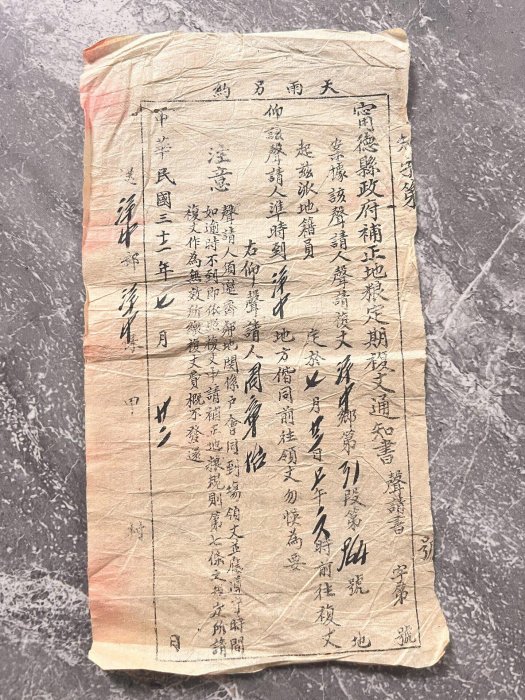 天雨另約
字第 號
甯德縣政府補正地粮定期複丈通知書 聲請書 字第 號
案據該聲請人聲請複丈洋中鄉第 段第 號地
起茲派地籍員 定於七月 日 午 時前往複丈
仰該聲請人準時到洋中地方偕同前往領丈勿悞為要
右仰聲請人周
注意
聲請人須邀齊鄰地関係户會同到場領丈並應遵守時間
如逾時不到即依照複丈申請補正地粮規則第七條之規定所請
複丈作為無效所繳複丈費概不發還
中華民國三十二年七月廿二日
洋中鄉洋中 甲 村